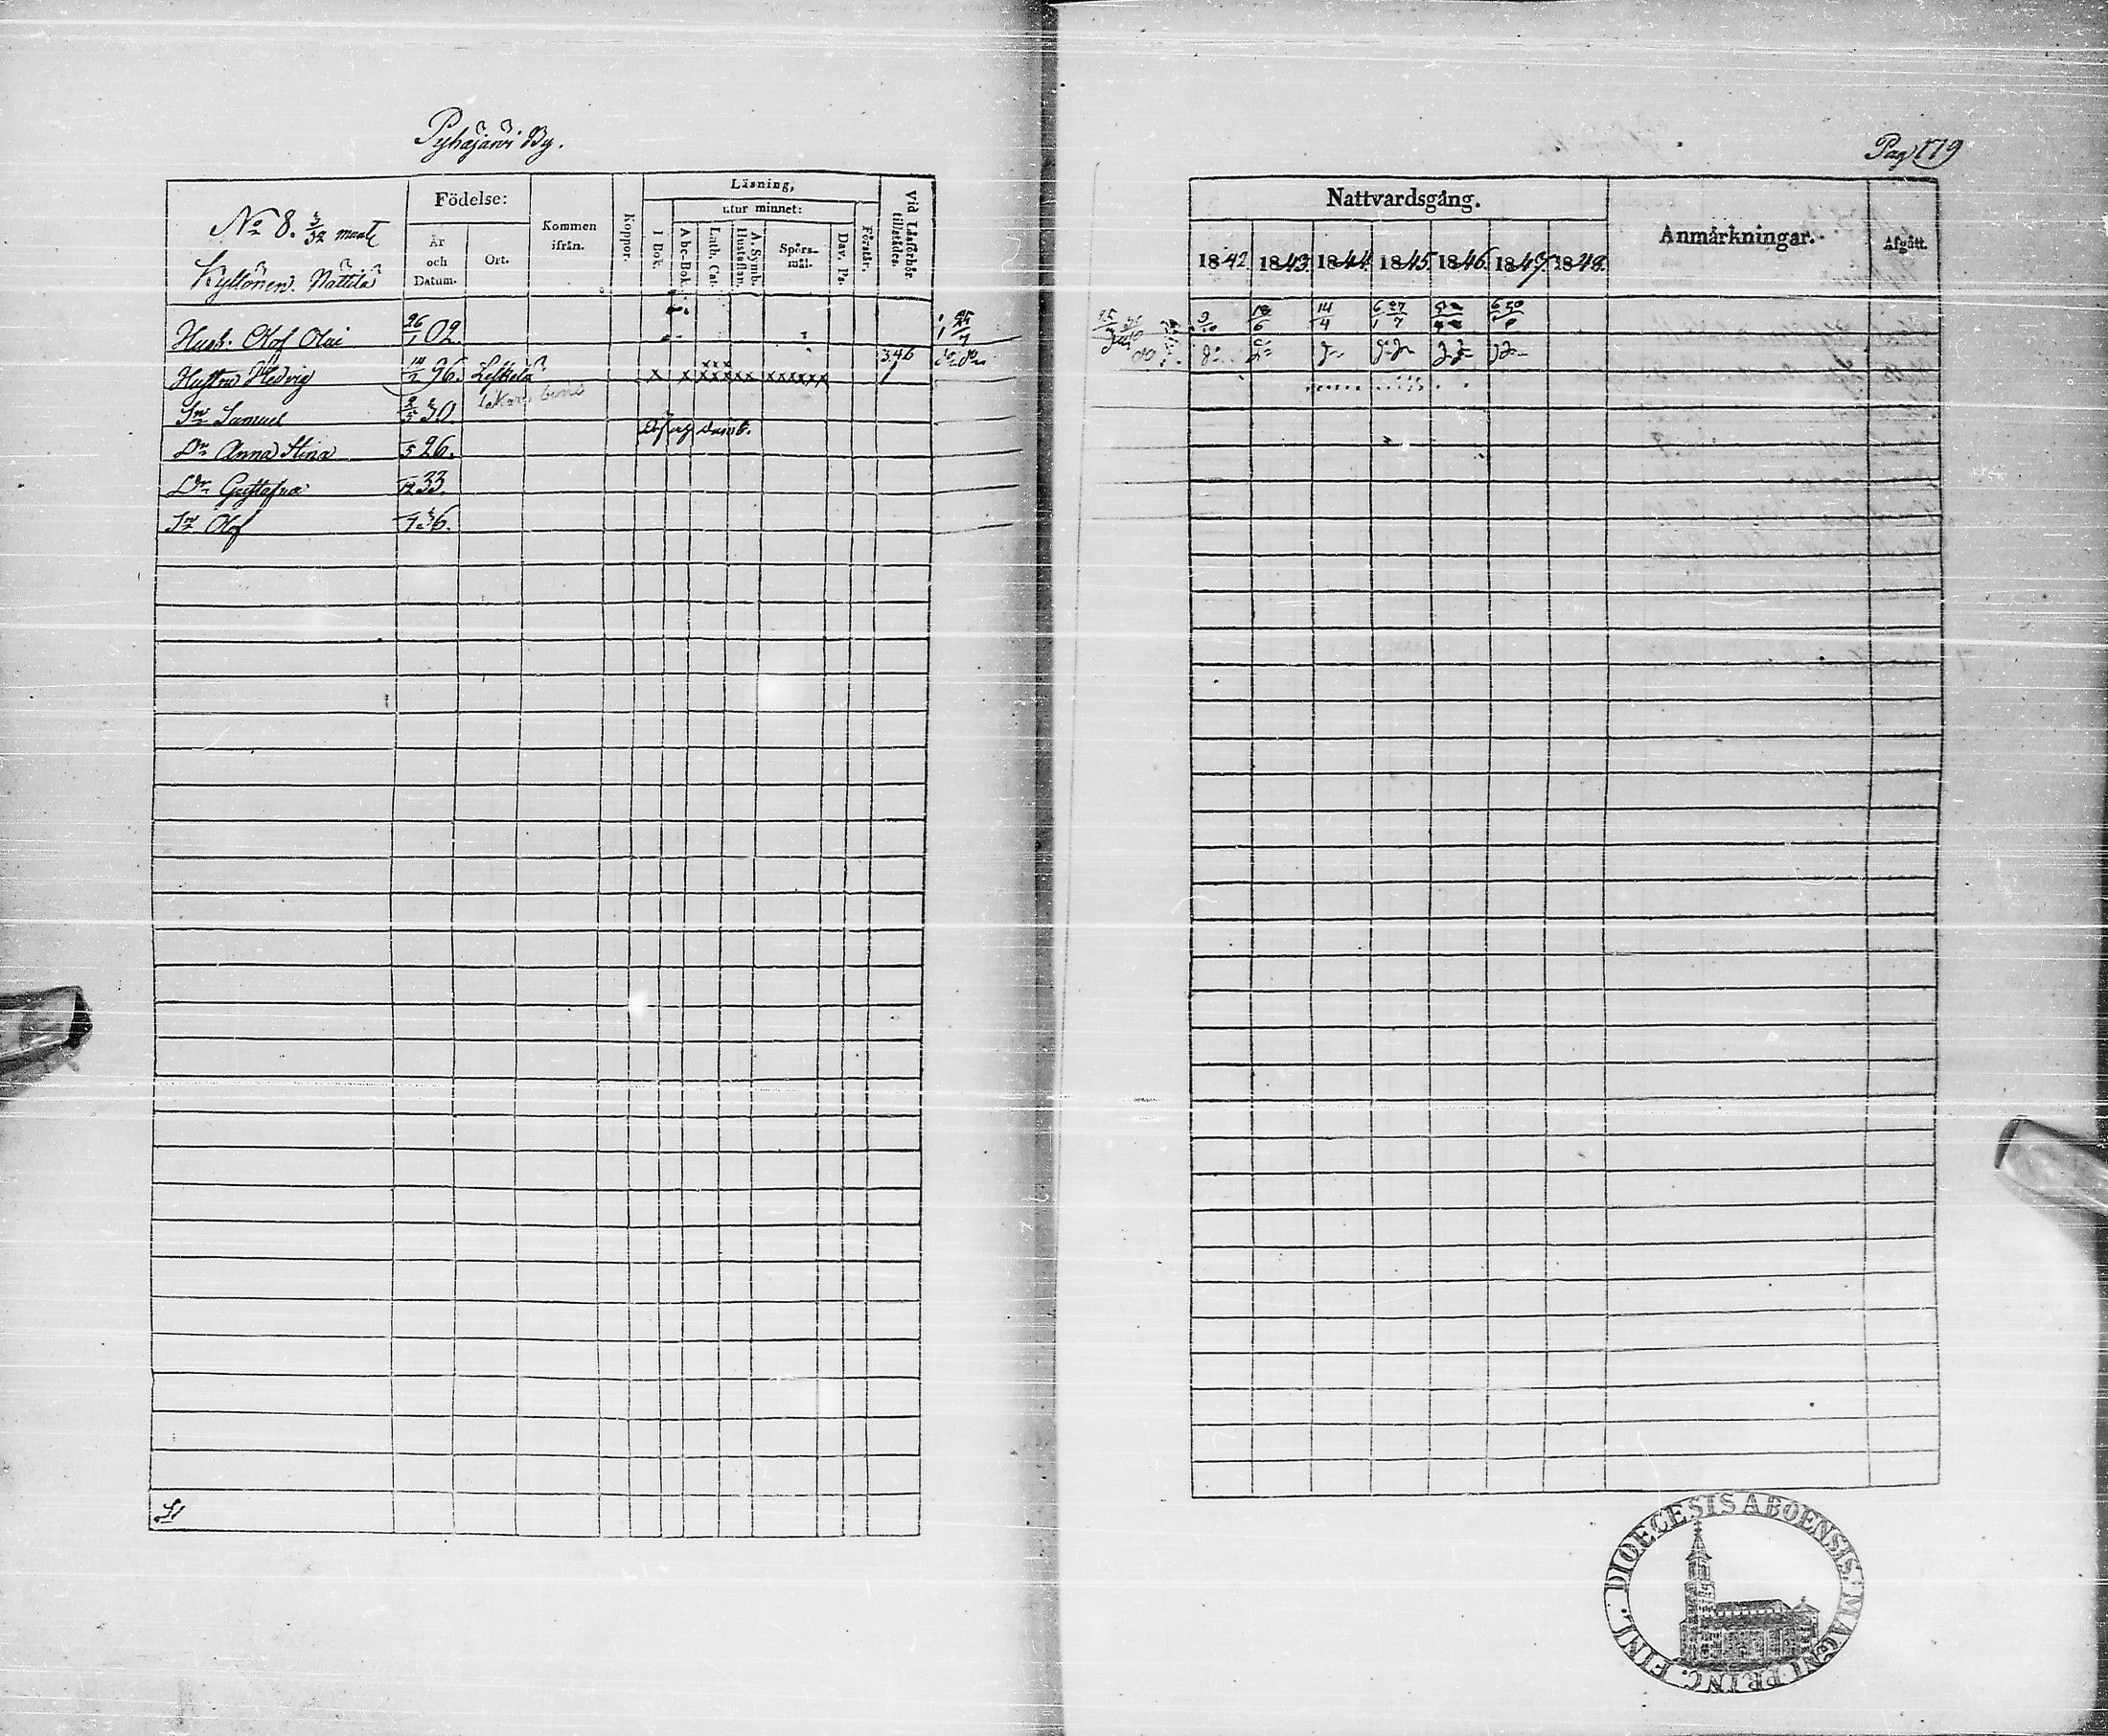 Pyhäjärvi By.
Pag 179
No 8. 3/32 mantl
Kyllönen. Nättilä
Födelse:
År och Datum.
Ort.
Kommen ifrån.
Koppor.
Läsning,
I Bok.
utur minnet:
Abc-Bok.
Luth. Cat.
A. Symb. Hustaflan.
Spörsmål.
Dav. Ps.
Förstår.
Vid Läsförhör tillstädes.
Nattvardsgång.
1842. 1843. 1844. 1845. 1846. 1847. 1848.
Anmärkningar.
Afgått.
Husb. Olof Olai 26/1 02.
9/10 18/6 14/4 6/1 27/7
Hustru Hedvig 14/2 96. Leskelä x x xxxxx xxxxxx 346
Sn Samuel 8/5 30.
Döf och dumb.
Dr Anna Stina 5 26.
Dr Gustafva 12 33.
Sn Olof 7 36.
DIOECESIS ABOENSIS. MAGNI PRINC. FINL.